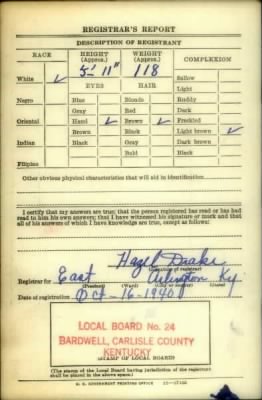 REGISTRAR'S REPORT
DESCRIPTION OF REGISTRANT
RACE HEIGHT (Approx.) WEIGHT (Approx.) COMPLEXION
5' 11" 118
White ✓ Sallow
EYES HAIR Light
Negro Blue Blonde Ruddy
Gray Red Dark
Oriental Hazel ✓ Brown ✓ Freckled
Brown Black Light brown ✓
Indian Black Gray Dark brown
Bald Black
Filipino
Other obvious physical characteristics that will aid in identification
I certify that my answers are true; that the person registered has read or has had
read to him his own answers; that I have witnessed his signature or mark and that
all of his answers of which I have knowledge are true, except as follows:
Hazel Drake
(Signature of registrar)
Registrar for East Arlington Ky.
(Precinct) (Ward) (City or county) (State)
Date of registration Oct-16-1940
LOCAL BOARD No. 24
BARDWELL, CARLISLE COUNTY
KENTUCKY
(STAMP OF LOCAL BOARD)
(The stamp of the Local Board having jurisdiction of the registrant
shall be placed in the above space.)
U. S. GOVERNMENT PRINTING OFFICE